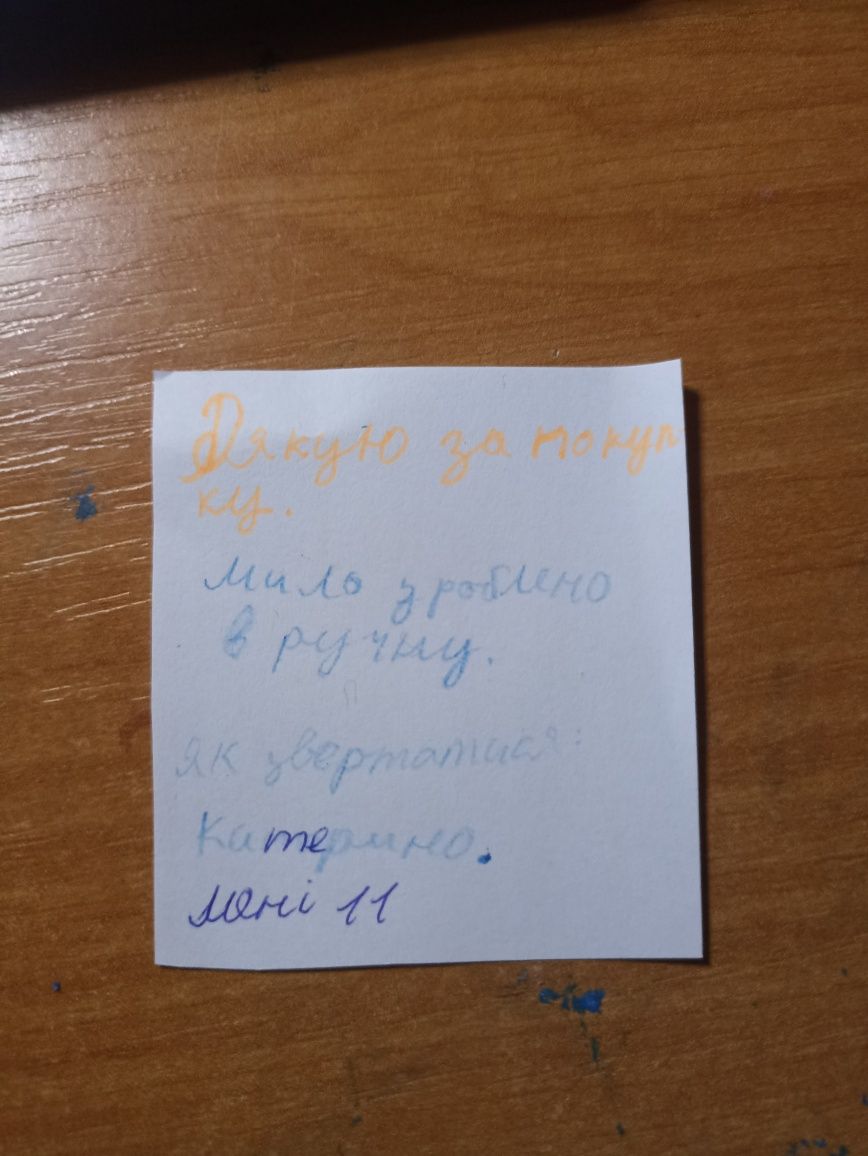 Дякую за покуп
ку.
Мило зроблено
в ручну.
як звертатися:
Катерино.
Мені 11